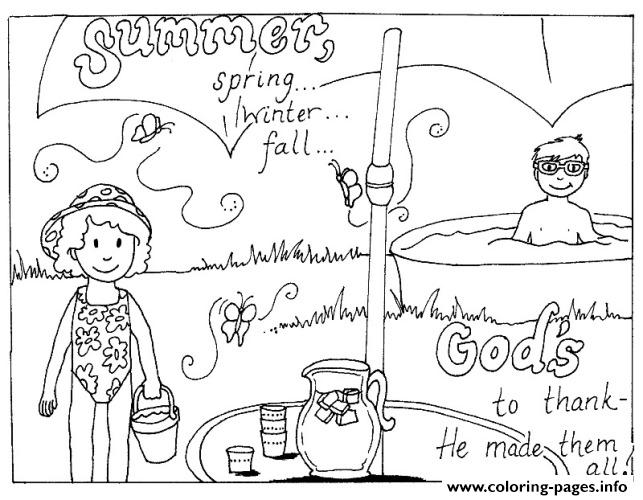 Summer,
spring...
winter...
fall...
God's
to thank-
He made them
all!
www.coloring-pages.info